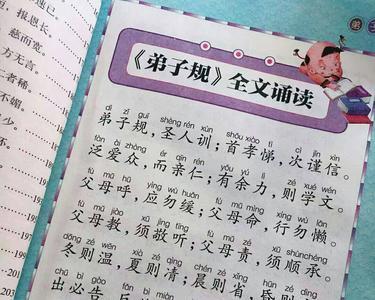 报恩长。
慈而宽。
方无言。
者稀。
不媚。
少。
《弟子规》全文诵读
dì zǐ guī shèng rén xùn shǒu xiào tì cì jǐn xìn
弟子规,圣人训;首孝悌,次谨信。
fàn ài zhòng ér qīn rén yǒu yú lì zé xué wén
泛爱众,而亲仁;有余力,则学文。
fù mǔ hū yìng wù huǎn fù mǔ mìng xíng wù lǎn
父母呼,应勿缓;父母命,行勿懒。
fù mǔ jiào xū jìng tīng fù mǔ zé xū shùnchéng
父母教,须敬听;父母责,须顺承。
dōng zé wēn xià zé qìng chén zé xǐng
冬则温,夏则凊;晨则省,昏
chū bì gào
出必告,